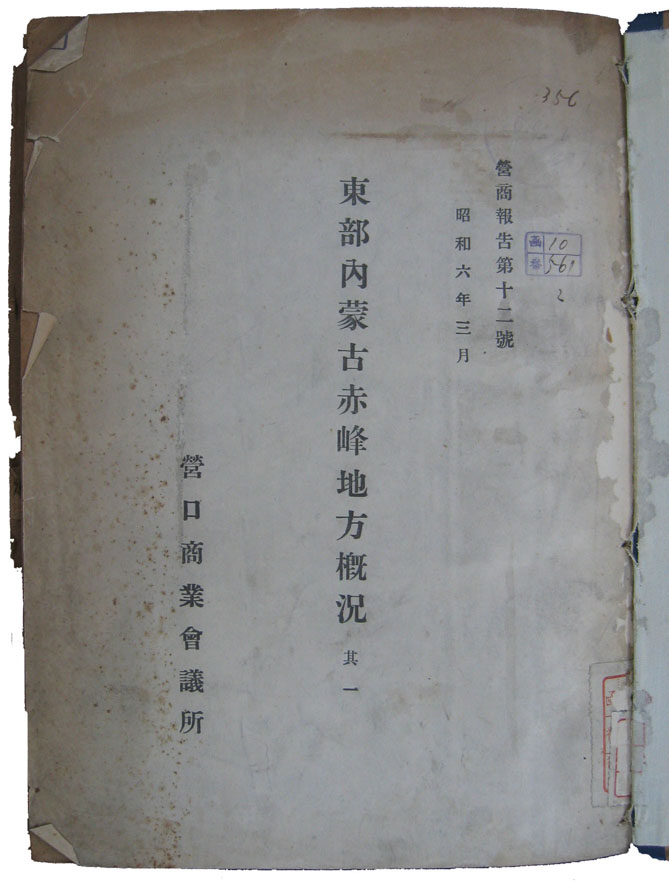 356
營商報告第十二號
10
561
2
昭和六年三月
東部內蒙古赤峰地方概況 其一
營口商業會議所